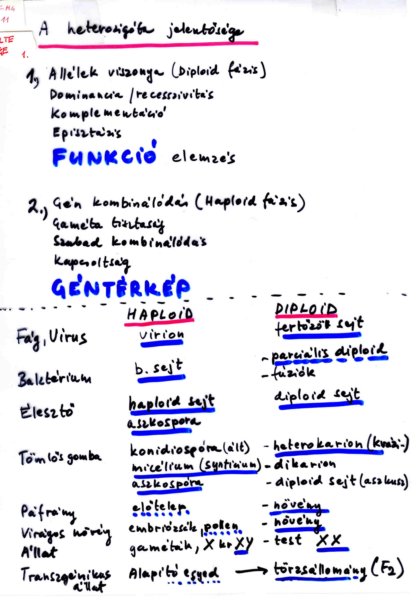 A heterozigóta jelentősége
1.
1, Allélek viszonya (Diploid fázis)
Dominancia / recesszivitás
Komplementáció
Episztázis
FUNKCIÓ elemzés
2., Gén kombinálódás (Haploid fázis)
Gaméta tisztaság
Szabad kombinálódás
Kapcsoltság
GÉNTÉRKÉP
HAPLOID DIPLOID
Fág, Vírus virion fertőzött sejt
Baktérium b. sejt - parciális diploid
- fúziók
Élesztő haploid sejt diploid sejt
aszkospóra
Tömlős gomba konidiospóra (ált) - heterokarion (kvázi-)
micélium (syntíium) - dikarion
aszkospóra - diploid sejt (aszkusz)
Páfrány előtelep - növény
Virágos növény embriózsák, pollen - növény
Állat gaméták, X v. XY - test XX
Transzgénikus állat Alapító egyed → törzsállomány (F2)